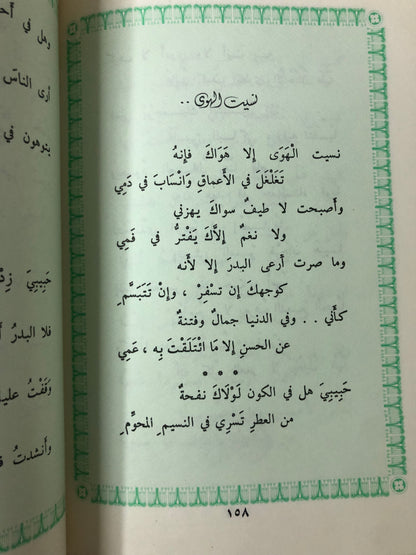 نسيت الهوى ..
نسيت الْهَوَى إلا هَوَاكَ فإنهُ
تَغَلْغَلَ في الأَعماقِ وَانْسَابَ في دَمِي
وأصبحت لا طيفٌ سواكَ يهزني
ولا نغمٌ إلاَّكَ يَفْتَرُّ في فَمِي
وما صرت أرعى البدرَ إلا لأنه
كوجهكَ إن تسفِرْ ، وإنْ تَتَبَسَّمِ
كأني .. وفي الدنيا جمالٌ وفتنةٌ
عن الحسنِ إلا مَا ائْتَلَقْتَ بِهِ ، عَمِي
• • •
حَبِيبِيَ هل في الكون لَوْلَاكَ نفحةٌ
من العطرِ تَسْرِي في النسيمِ المحوَّمِ
١٥٨
وهل في
أرى الناسَ
ينوهون في
حَبِيبِيَ
فلا البدرُ
وَقَفْتُ
وأنشدتُ